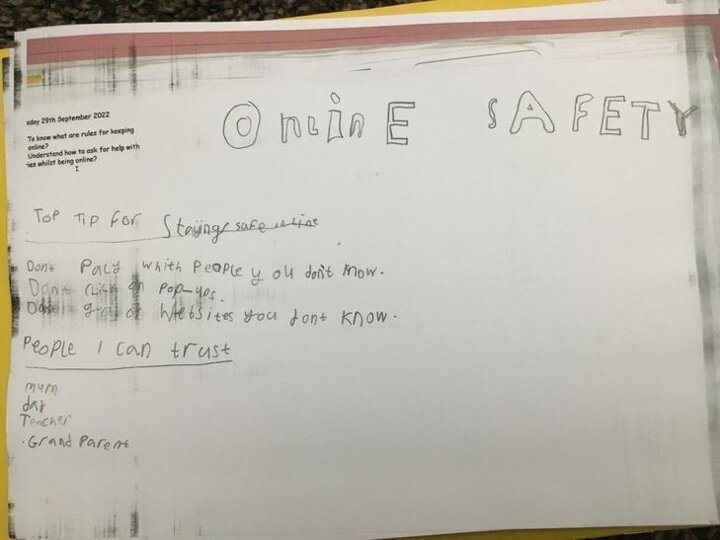 sday 29th September 2022
To know what are rules for keeping
online?
Understand how to ask for help with
ies whilst being online?
OnLinE SAFETY
Top Tip For Staying safe online
Dont Paly whith PeoPle you don't know.
Dont CLick on PoP-uPs.
Dont go on Websites you dont KNOW.
PeoPle I Can trust
mum
dad
Teacher
. Grand Parent